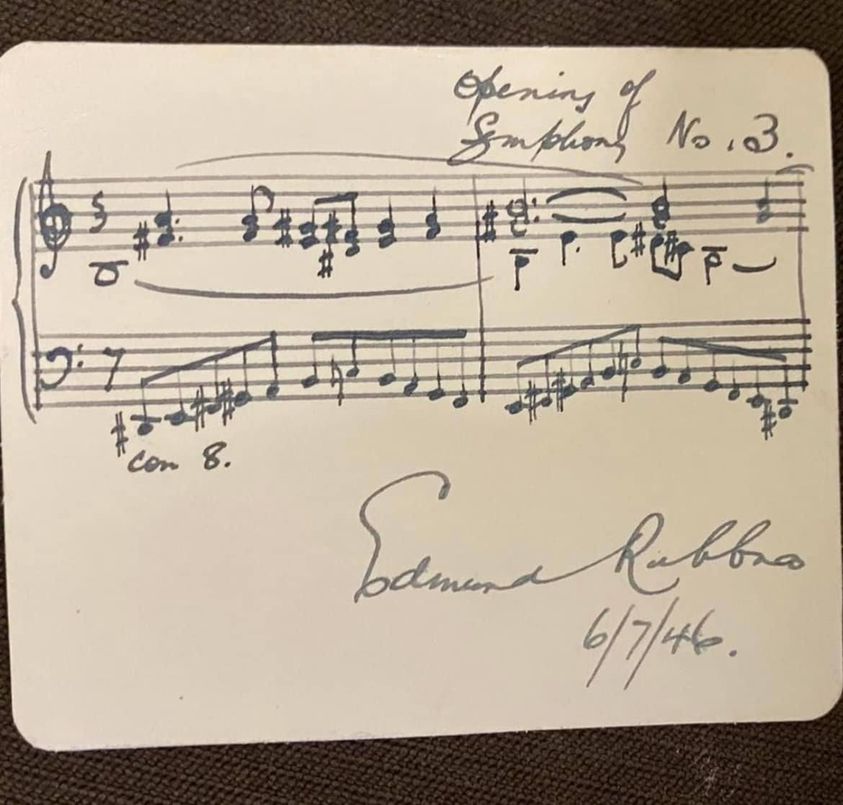 Opening of
Symphony No. 3.
con 8.
Edmund Rubbra
6/7/46.